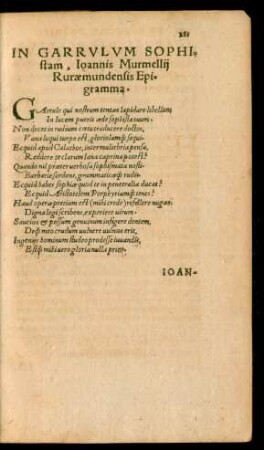 IN GARRVLVM SOPHI,
stam, Ioannis Murmellij
Ruræmundensis Epi-
gramma.
GArrule qui nostrum tentas lapidare libellum,
In lucem pueris æde sophista tuum.
Non decet in rudium cœtu traducere doctos,
Vana loqui turpe est, gloriolamq; sequi.
Ecquid apud Calathos, inter muliebria pensa,
Reddere te clarum lana caprina potest?
Quando nil præter verbosa sophismata nosti
Barbariæ sordens, grammaticæq; rudis.
Ecquid habes sophiæ quod te in penetralia ducat?
Ecquid Aristotelem Porphyriumq; tenes?
Haud operæpretium est (mihi crede) refellere nugas:
Digna legi scribens, experiere virum.
Saucius & possum genuinum infigere dentem,
Deq; meo crudum vulnere vulnus erit,
Ingenijs hominum studeo prodesse iuuandis,
Estq; mihi vero gloria nulla prior.
IOAN-